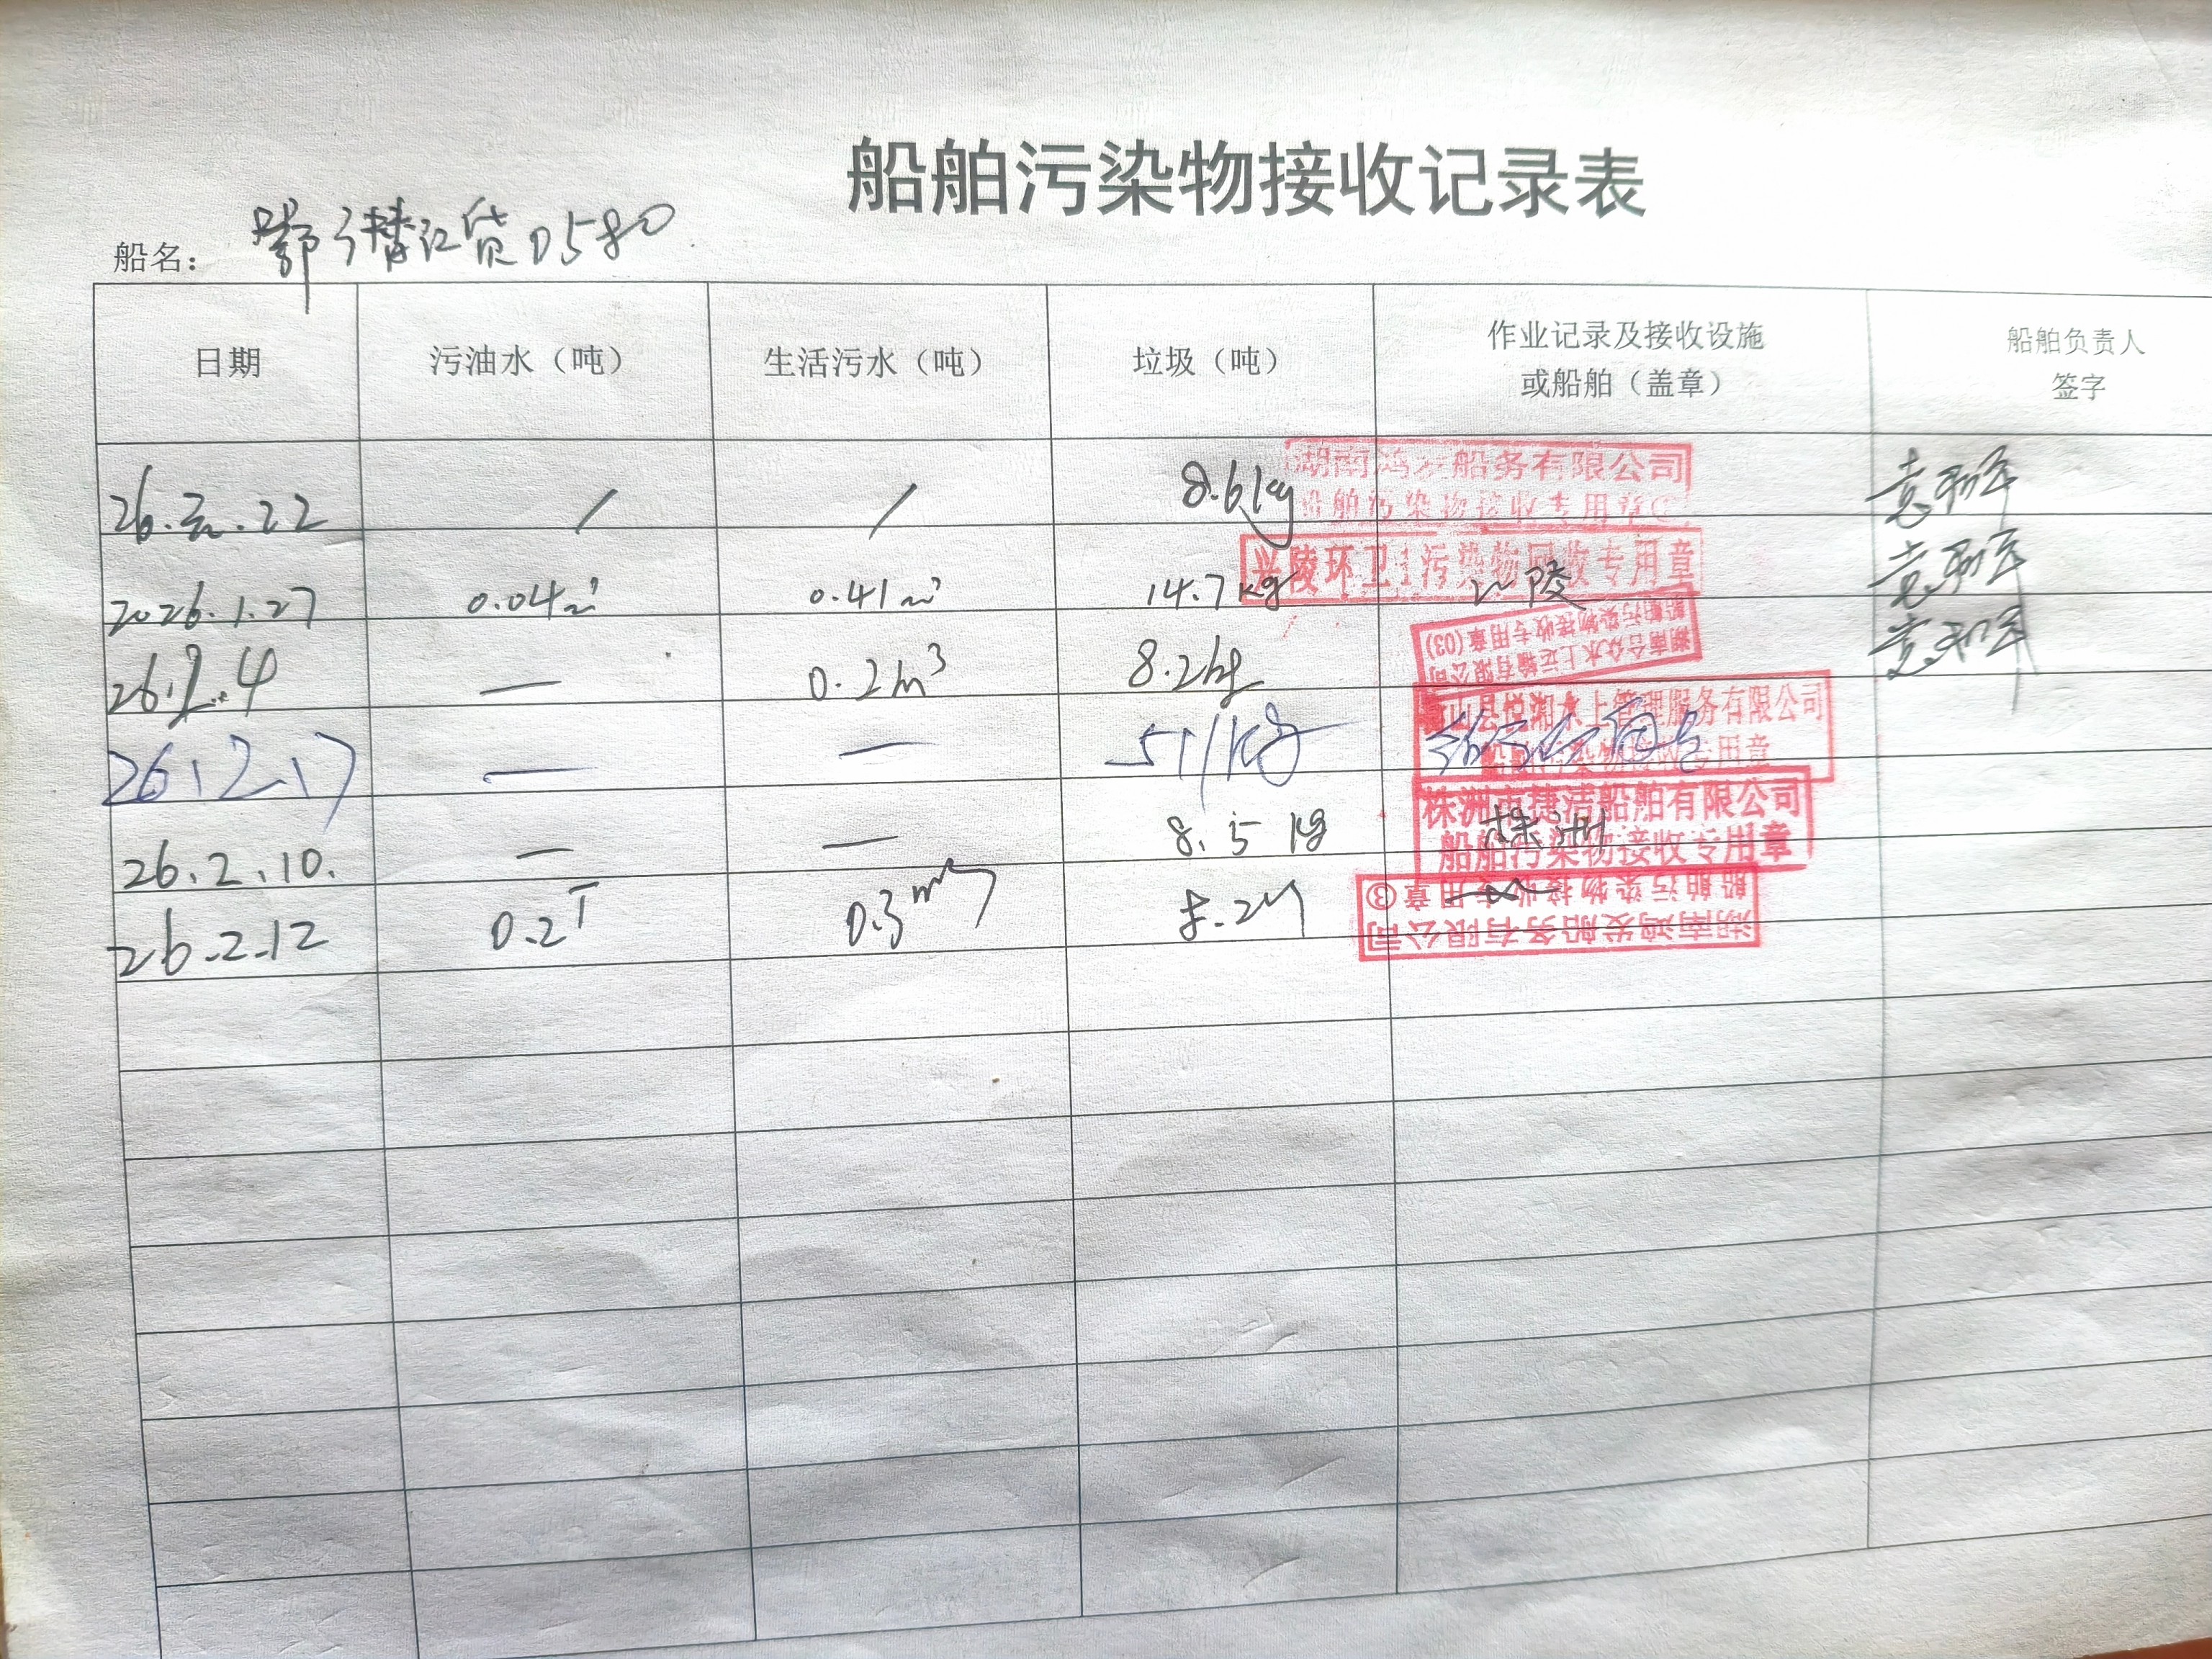 船舶污染物接收记录表
船名： 鄂 江货0580
日期 污油水（吨） 生活污水（吨） 垃圾（吨） 作业记录及接收设施或船舶（盖章） 船舶负责人签字
26. .22 / / 8.6kg
湖南鸿发船务有限公司
船舶污染物接收专用章
2026.1.27 0.04m³ 0.41m³ 14.7kg 陵
兴陵环卫 污染物回收专用章
26.2.4 — 0.2m³ 8.2kg
湖南合众水上运输有限公司
船舶污染物接收专用章(03)
26.2.17 — — 51kg
湘水上管理服务有限公司
船舶污染物接收专用章
26.2.10. — — 8.5kg 株洲
株洲市捷洁船舶有限公司
船舶污染物接收专用章
26.2.12 0.2T 0.3m³ 8.2
湖南鸿发船务有限公司
船舶污染物接收专用章③